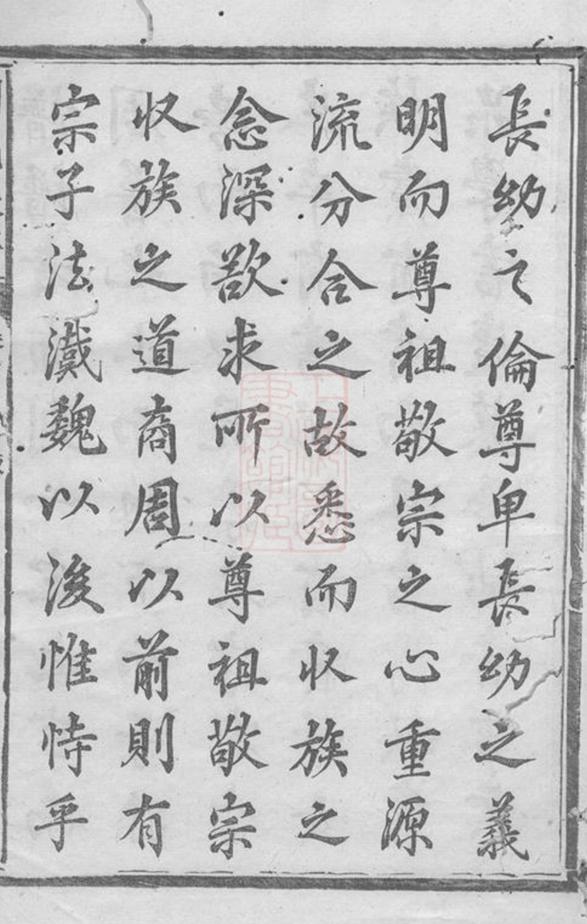 長幼之倫尊卑長幼之義
明而尊祖敬宗之心重源
流分合之故悉而収族之
念深欲求所以尊祖敬宗
収族之道商周以前則有
宗子法漢魏以後惟恃乎